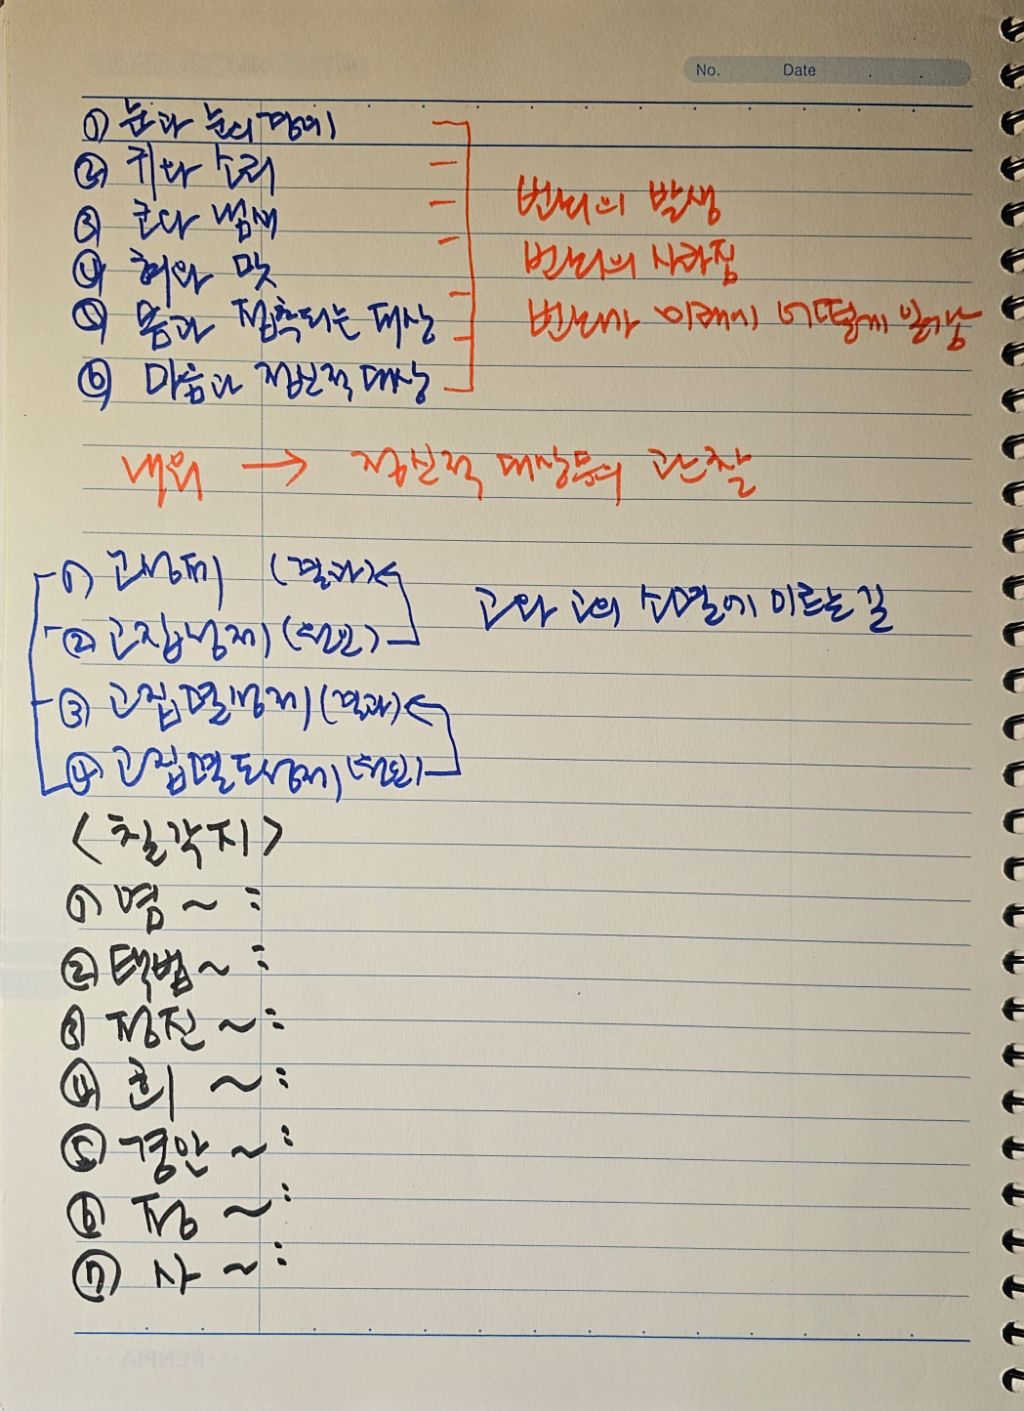 No. Date
① 눈과 눈의 경계
② 귀와 소리
③ 코와 냄새
④ 혀와 맛
⑤ 몸과 접촉되는 대상
⑥ 마음과 정신적 대상
번뇌의 발생
번뇌의 사라짐
번뇌가 미래에 어떻게
내외 → 정신적 대상들의 관찰
① 고성제 (결과)
② 고집성제 (원인)
③ 고집멸성제 (결과)
④ 고집멸도성제 (원인)
고와 고의 소멸에 이르는 길
<칠각지>
① 염 ~ :
② 택법 ~ :
③ 정진 ~ :
④ 희 ~ :
⑤ 경안 ~ :
⑥ 정 ~ :
⑦ 사 ~ :